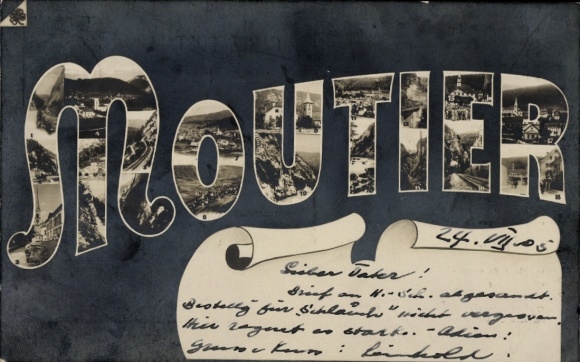 MOUTIER
24. VII. 05
Lieber Vater!
Brief an H.-Sch. abgesandt.
Bestellg für "Schläuche" nicht vergessen.
Hier regnet es stark. - Adieu!
Gruss u Kuss: